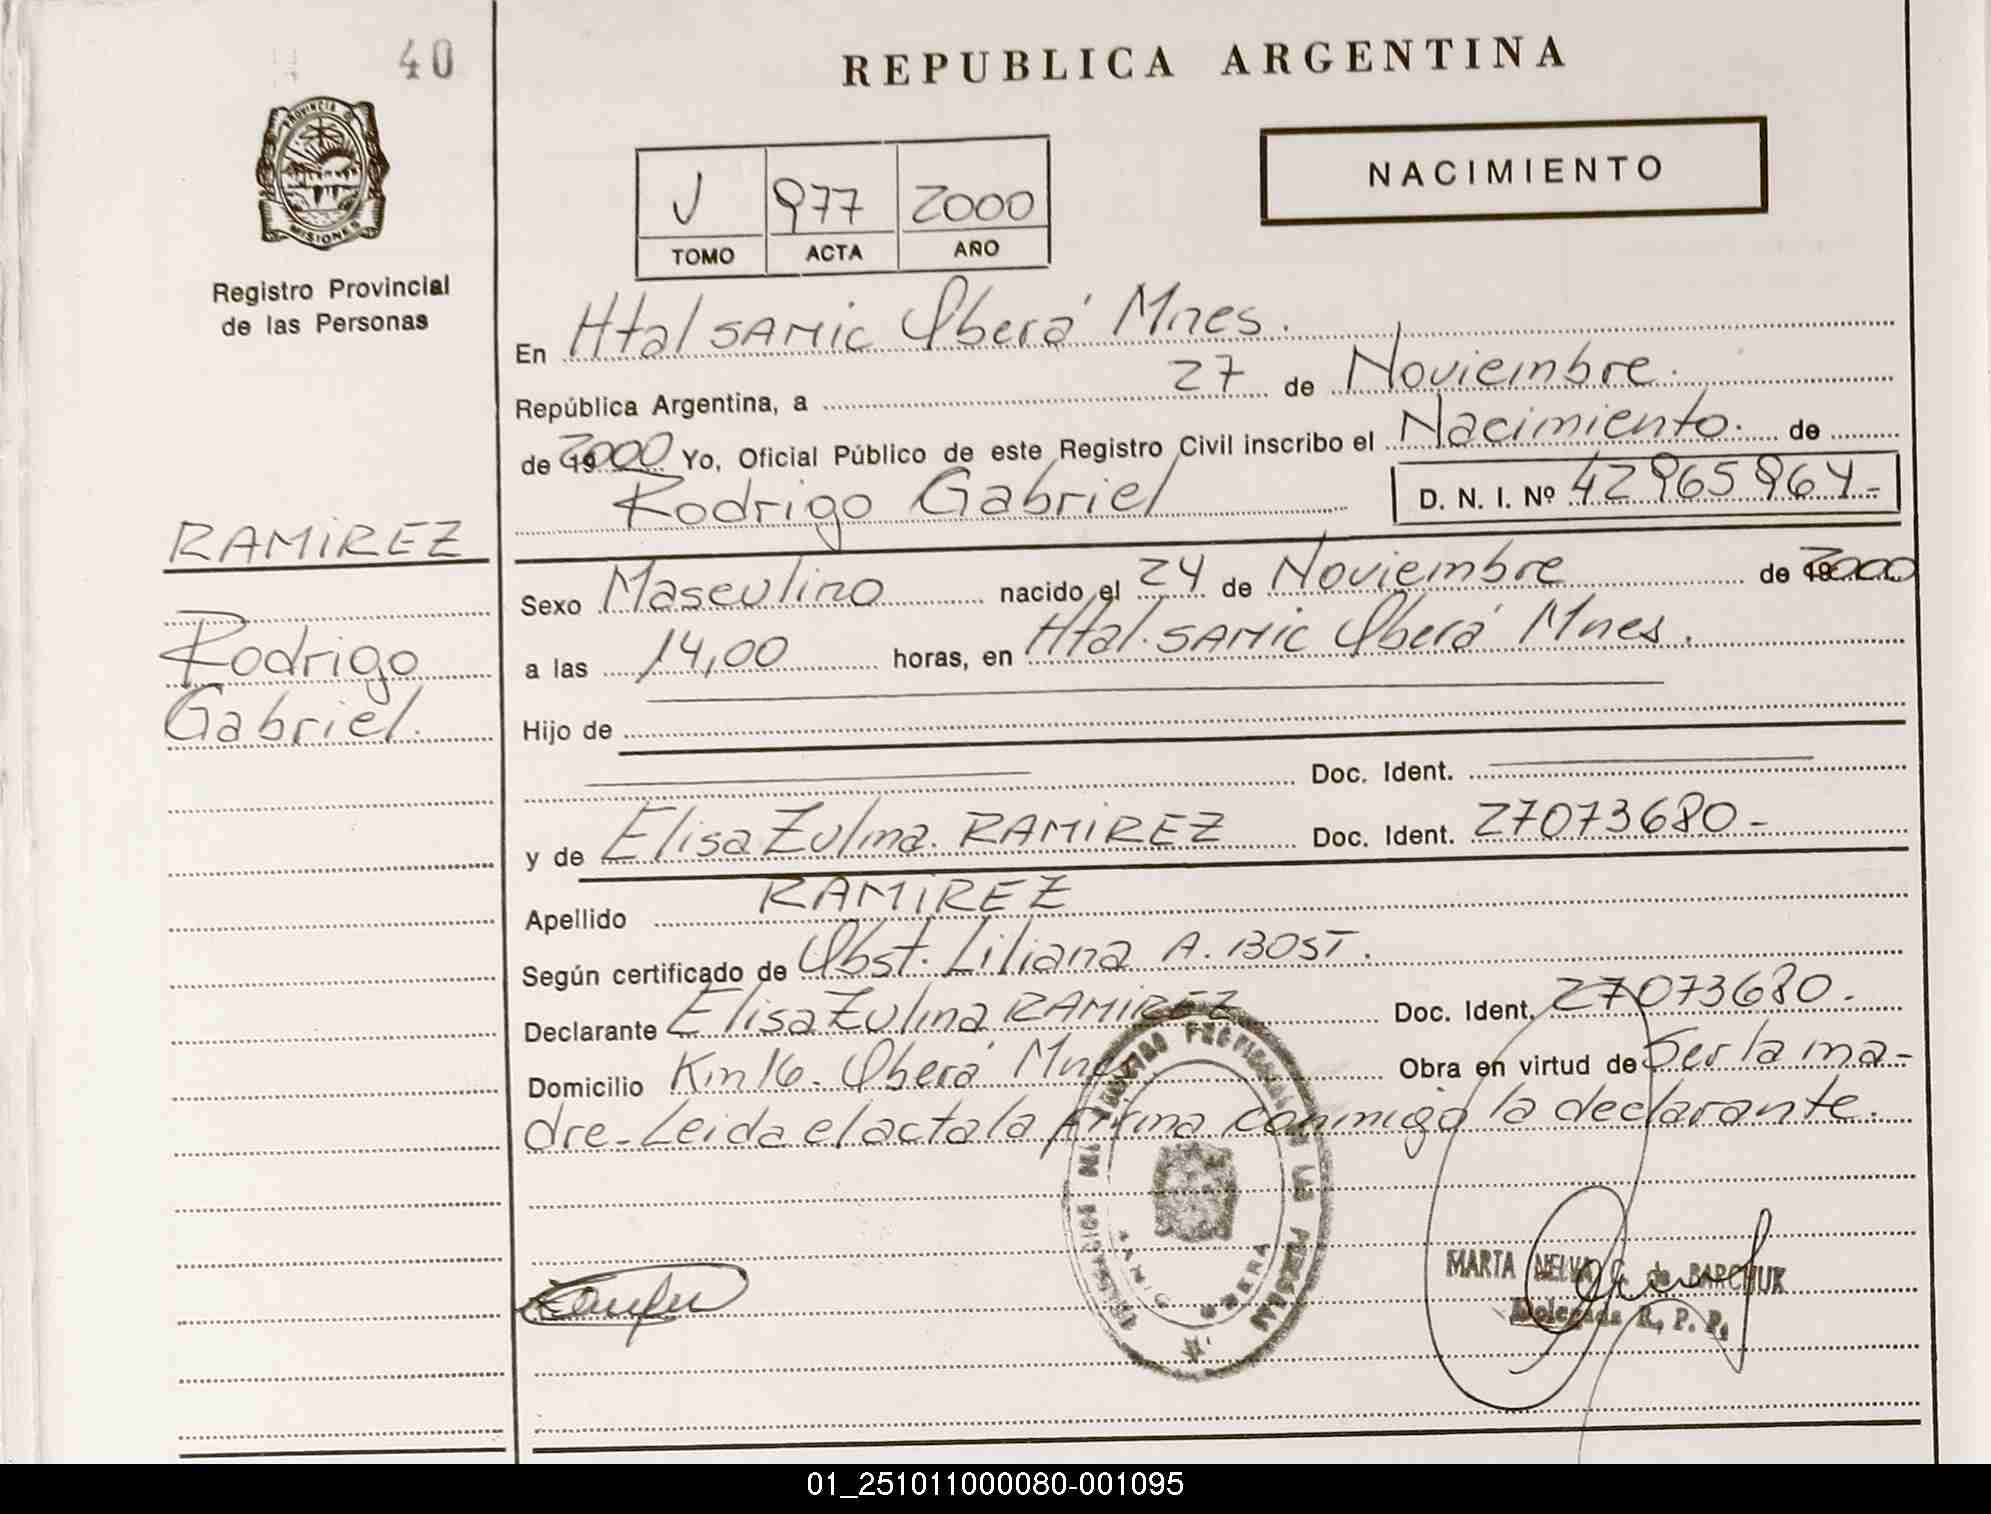 40
REPUBLICA ARGENTINA
PROVINCIA
MISIONES
NACIMIENTO
J 977 2000
TOMO ACTA AÑO
Registro Provincial
de las Personas
En Htal SAMIC Oberá Mnes.
República Argentina, a 27 de Noviembre.
de 2000 Yo, Oficial Público de este Registro Civil inscribo el Nacimiento. de
Rodrigo Gabriel D. N. I. Nº 42965964-
RAMIREZ
Rodrigo
Gabriel.
Sexo Masculino nacido el 24 de Noviembre de 2000
a las 14,00 horas, en Htal. SAMIC Oberá Mnes.
Hijo de
Doc. Ident.
y de Elisa Zulma. RAMIREZ Doc. Ident. 27073680-
Apellido RAMIREZ
Según certificado de Obst. Liliana A. BOST.
Declarante Elisa Zulma RAMIREZ Doc. Ident. 27073680.
Domicilio Km 16. Oberá Mnes Obra en virtud de Ser la ma-
dre-Leida el acta la firma conmigo la declarante.
MARTA NELVA G. de BARCHUK
Delegada R. P. P.
01_251011000080-001095